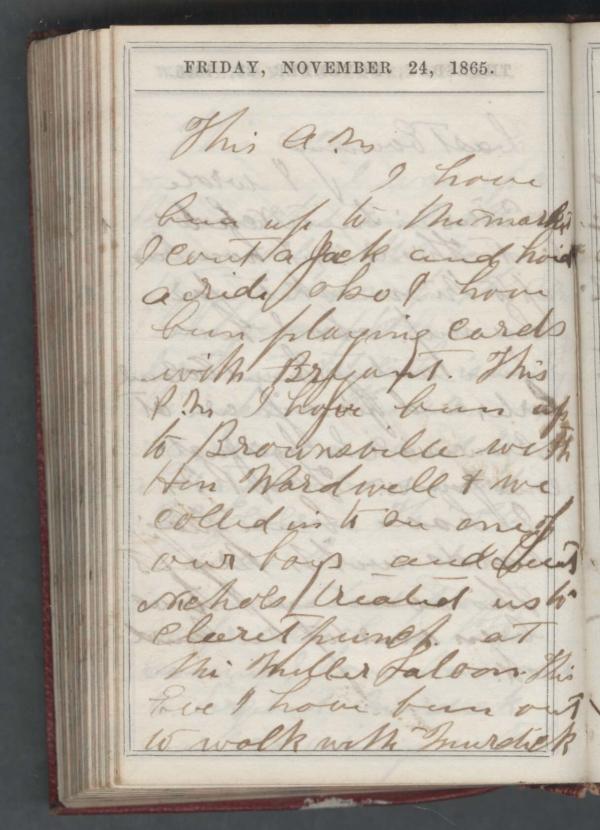 FRIDAY, NOVEMBER 24, 1865.
This A.M
I have
been up to the market
I cout a Jack and had
a ride also I have
been playing cards
with Bryant. This
P.M I have been up
to Brownsville with
Hen Wardwell & we
called in to see one of
our boys and
Nichols treated us to
claret punch at
the Miller Saloon. This
Eve I have been out
to walk with Murdick